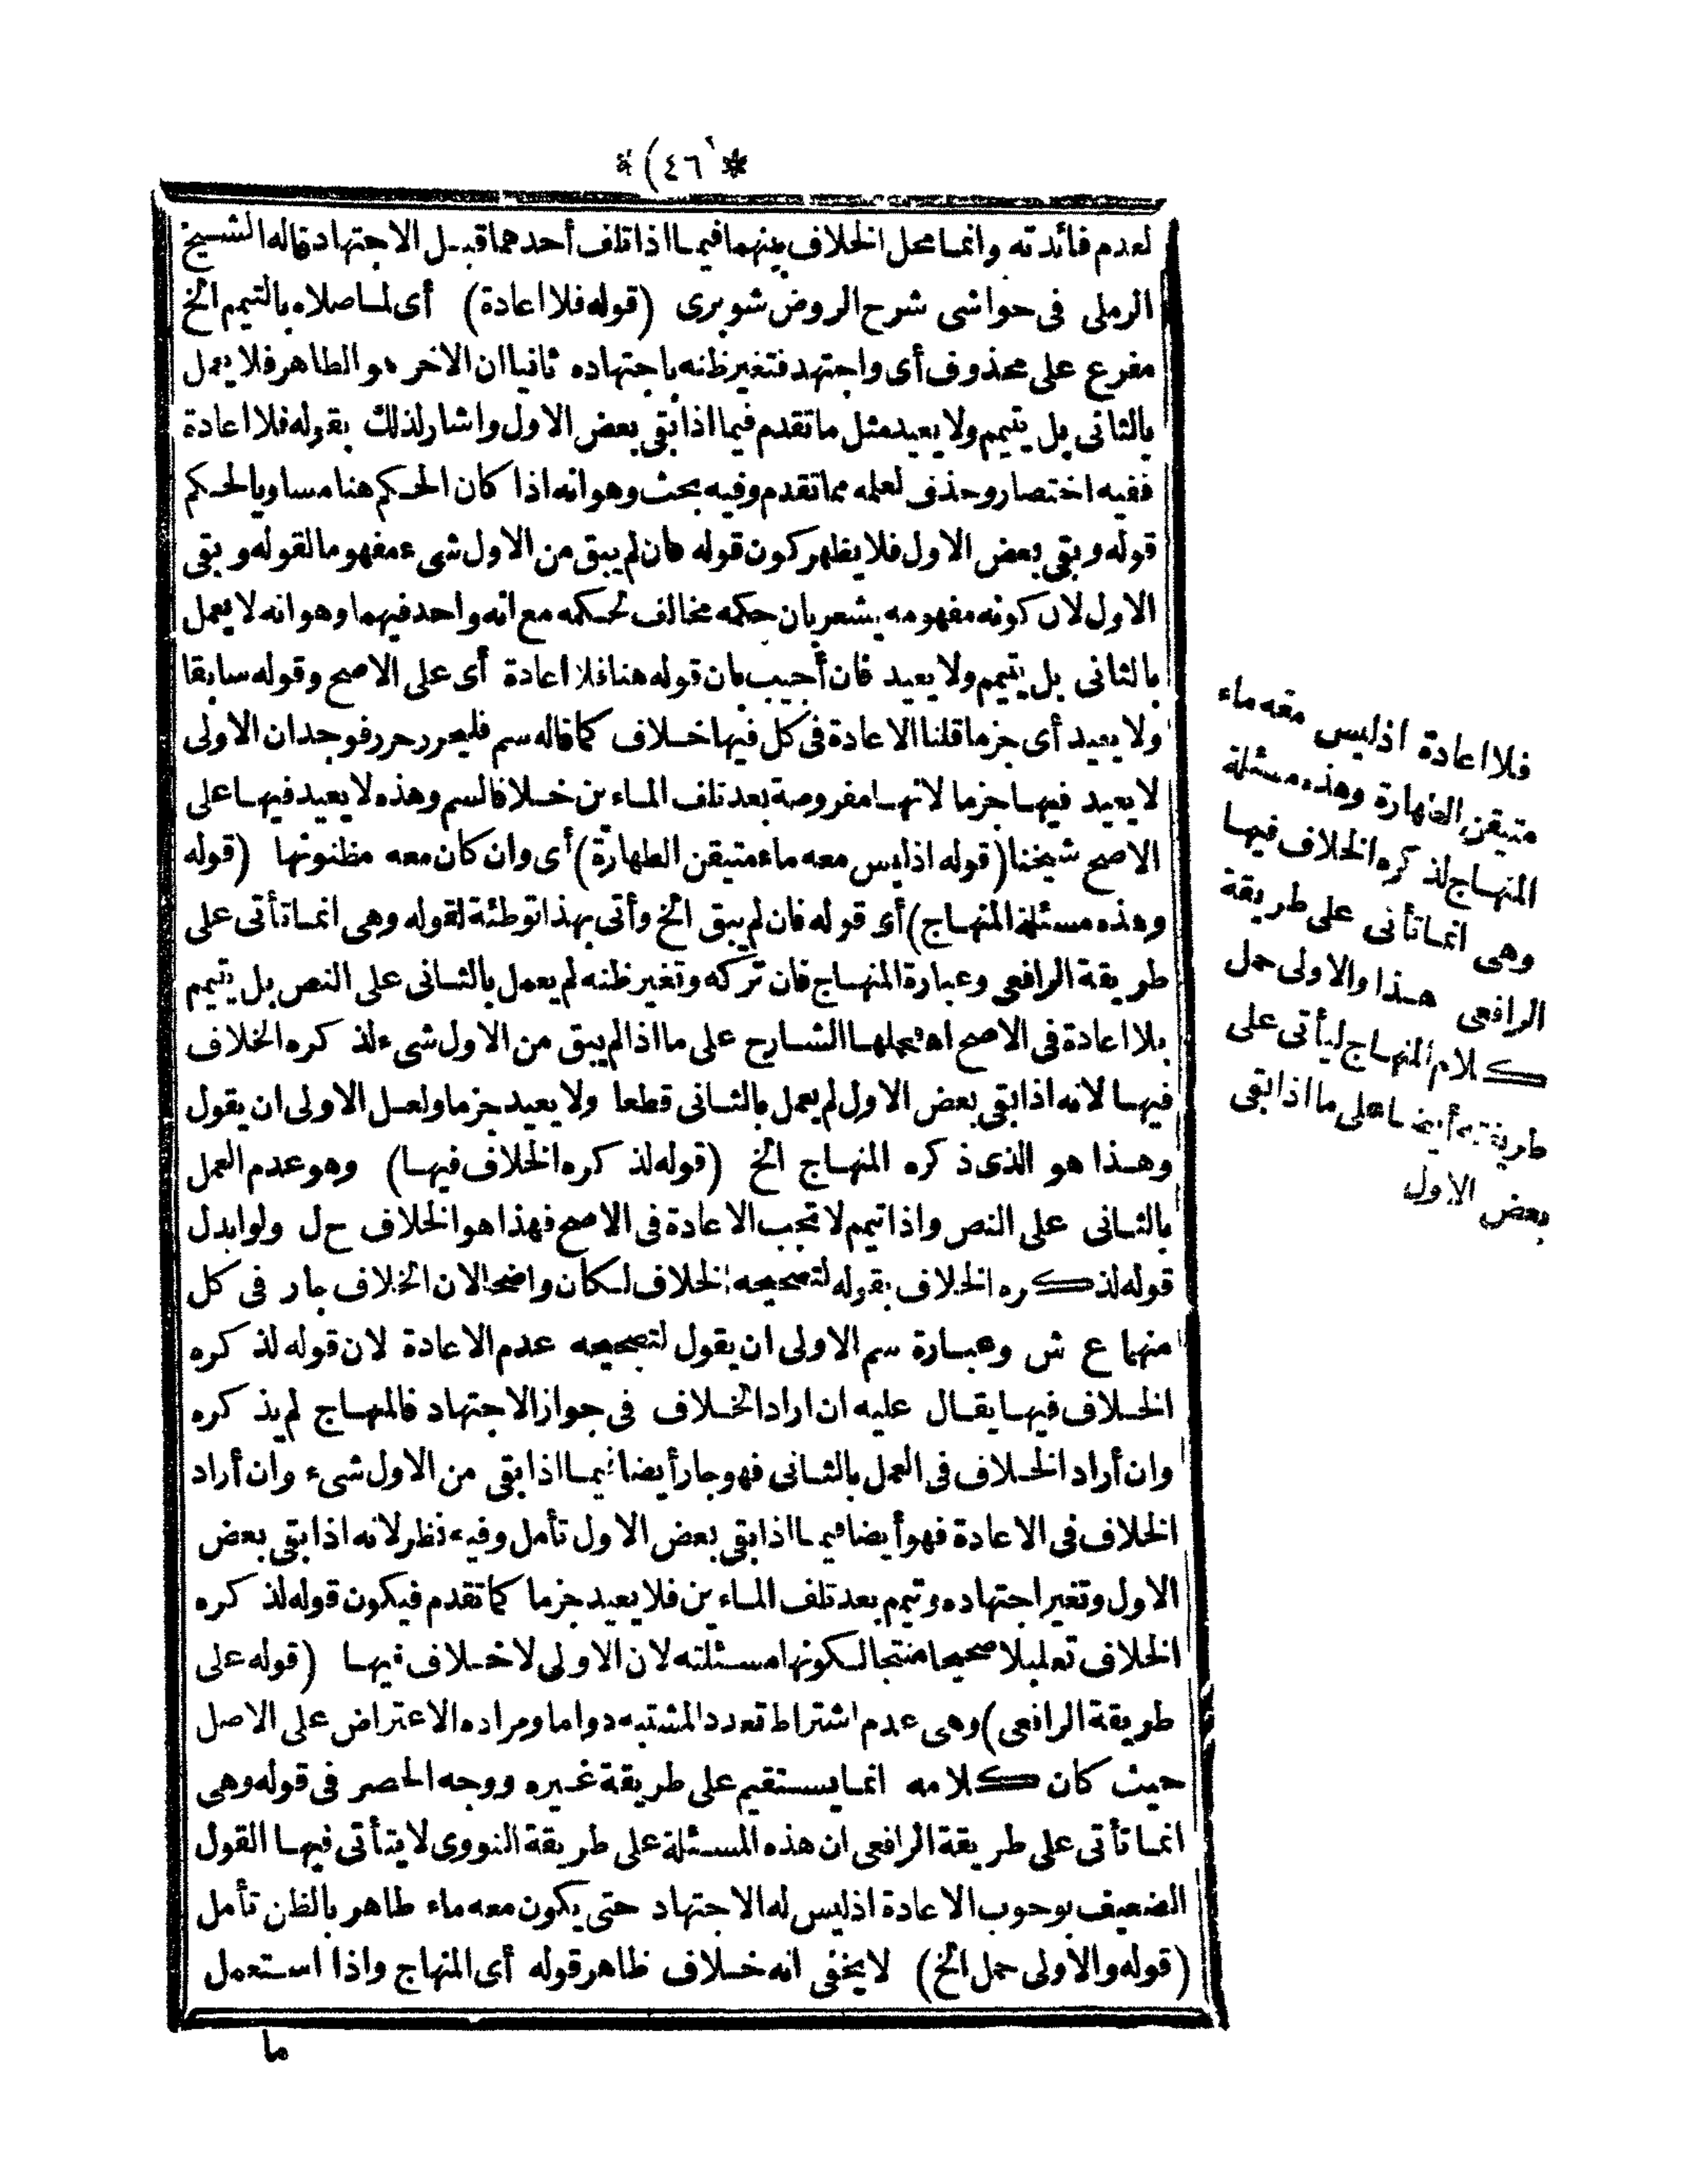 *(٤٦)*
لعدم فائدته وانما محل الخلاف بينهما فيما اذا تلف أحدهما قبل الاجتهاد قاله الشيخ
الرملى فى حواشى شرح الروض شوبرى (قوله فلا اعادة) أى لما صلاه بالتيمم الخ
مفرع على محذوف أى واجتهد فتغير ظنه باجتهاده ثانيا ان الاخر هو الطاهر فلا يعمل
بالثانى بل يتيمم ولا يعيد مثل ما تقدم فيما اذا بقى بعض الاول واشار لذلك بقوله فلا اعادة
ففيه اختصار وحذف لعلمه مما تقدم وفيه بحث وهو انه اذا كان الحكم هنا مساويا لحكم
قوله وبقى بعض الاول فلا يظهر كون قوله فان لم يبق من الاول شىء مفهوما لقوله وبقى
الاول لان كونه مفهومه يشعر بان حكمه مخالف لحكمه مع انه واحد فيهما وهو انه لا يعمل
بالثانى بل يتيمم ولا يعيد فان أجيب بان قوله هنا فلا اعادة أى على الاصح وقوله سابقا
ولا يعيد أى جزما قلنا الاعادة فى كل فيها خلاف كما قاله سم فليحرر حرر فوجد ان الاولى
لا يعيد فيها جزما لانها مفروضة بعد تلف الماءين خلافا لسم وهذه لا يعيد فيها على
الاصح شيخنا (قوله اذ ليس معه ماء متيقن الطهارة) أى وان كان معه مظنونها (قوله
وهذه مسئلة المنهاج) أى قوله فان لم يبق الخ وأتى بهذا توطئة لقوله وهى انما تأتى على
طريقة الرافعى وعبارة المنهاج فان تركه وتغير ظنه لم يعمل بالثانى على النص بل يتيمم
بلا اعادة فى الاصح اه فحملها الشارح على ما اذا لم يبق من الاول شىء لذكره الخلاف
فيها لانه اذا بقى بعض الاول لم يعمل بالثانى قطعا ولا يعيد جزما ولعل الاولى ان يقول
وهذا هو الذى ذكره المنهاج الخ (قوله لذكره الخلاف فيها) وهو عدم العمل
بالثانى على النص واذا تيمم لا تجب الاعادة فى الاصح فهذا هو الخلاف ح ل ولو ابدل
قوله لذكره الخلاف بقوله لتصحيحه الخلاف لكان واضحا لان الخلاف جار فى كل
منهما ع ش وعبارة سم الاولى ان يقول لتصحيحه عدم الاعادة لان قوله لذكره
الخلاف فيها يقال عليه ان اراد الخلاف فى جواز الاجتهاد فالمنهاج لم يذكره
وان أراد الخلاف فى العمل بالثانى فهو جار أيضا فيما اذا بقى من الاول شىء وان أراد
الخلاف فى الاعادة فهو أيضا فيما اذا بقى بعض الاول تأمل وفيه نظر لانه اذا بقى بعض
الاول وتغير اجتهاده وتيمم بعد تلف الماءين فلا يعيد جزما كما تقدم فيكون قوله لذكره
الخلاف تعليلا صحيحا منتجا لكونها مسئلته لان الاولى لا خلاف فيها (قوله على
طريقة الرافعى) وهى عدم اشتراط تعدد المشتبه دواما ومراده الاعتراض على الاصل
حيث كان كلامه انما يستقيم على طريقة غيره ووجه الحصر فى قوله وهى
انما تأتى على طريقة الرافعى ان هذه المسئلة على طريقة النووى لا يتأتى فيها القول
الضعيف بوجوب الاعادة اذ ليس له الاجتهاد حتى يكون معه ماء طاهر بالظن تأمل
(قوله والاولى حمل الخ) لا يخفى انه خلاف ظاهر قوله أى المنهاج واذا استعمل
ما
فلا اعادة اذ ليس معه ماء
متيقن الطهارة وهذه مسئلة
المنهاج لذكره الخلاف فيها
وهى انما تأتى على طريقة
الرافعى هذا والاولى حمل
كلام المنهاج ليأتى على
طريقته أيضا على ما اذا بقى
بعض الاول